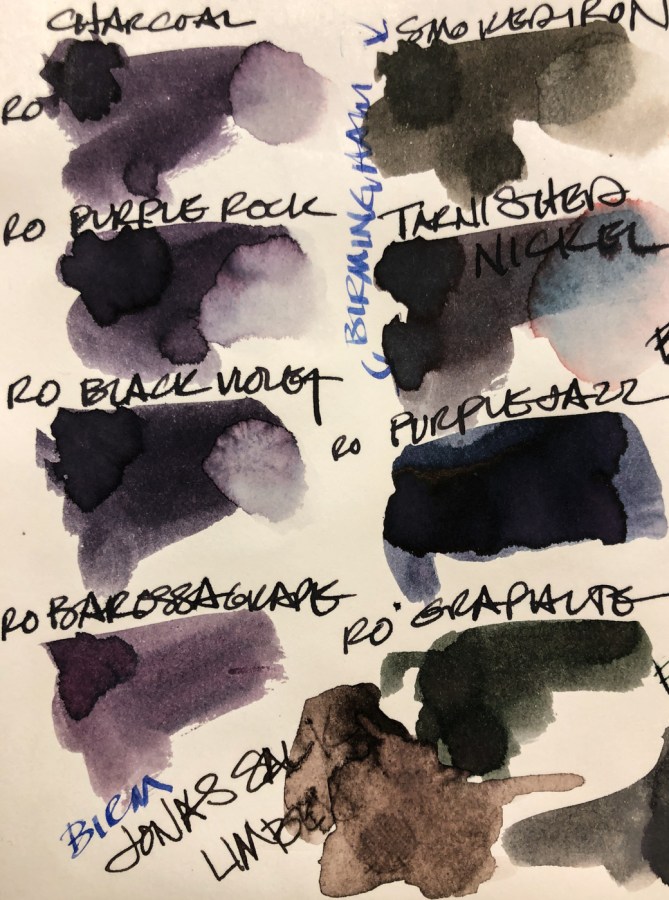 CHARCOAL
RO
RO PURPLE ROCK
RO BLACK VIOLET
RO BAROSSA GRAPE
BIRM
JONAS SALK
LIMBS
BIRMINGHAM
SMOKED IRON
TARNISHED
NICKEL
RO PURPLE JAZZ
RO GRAPHITE